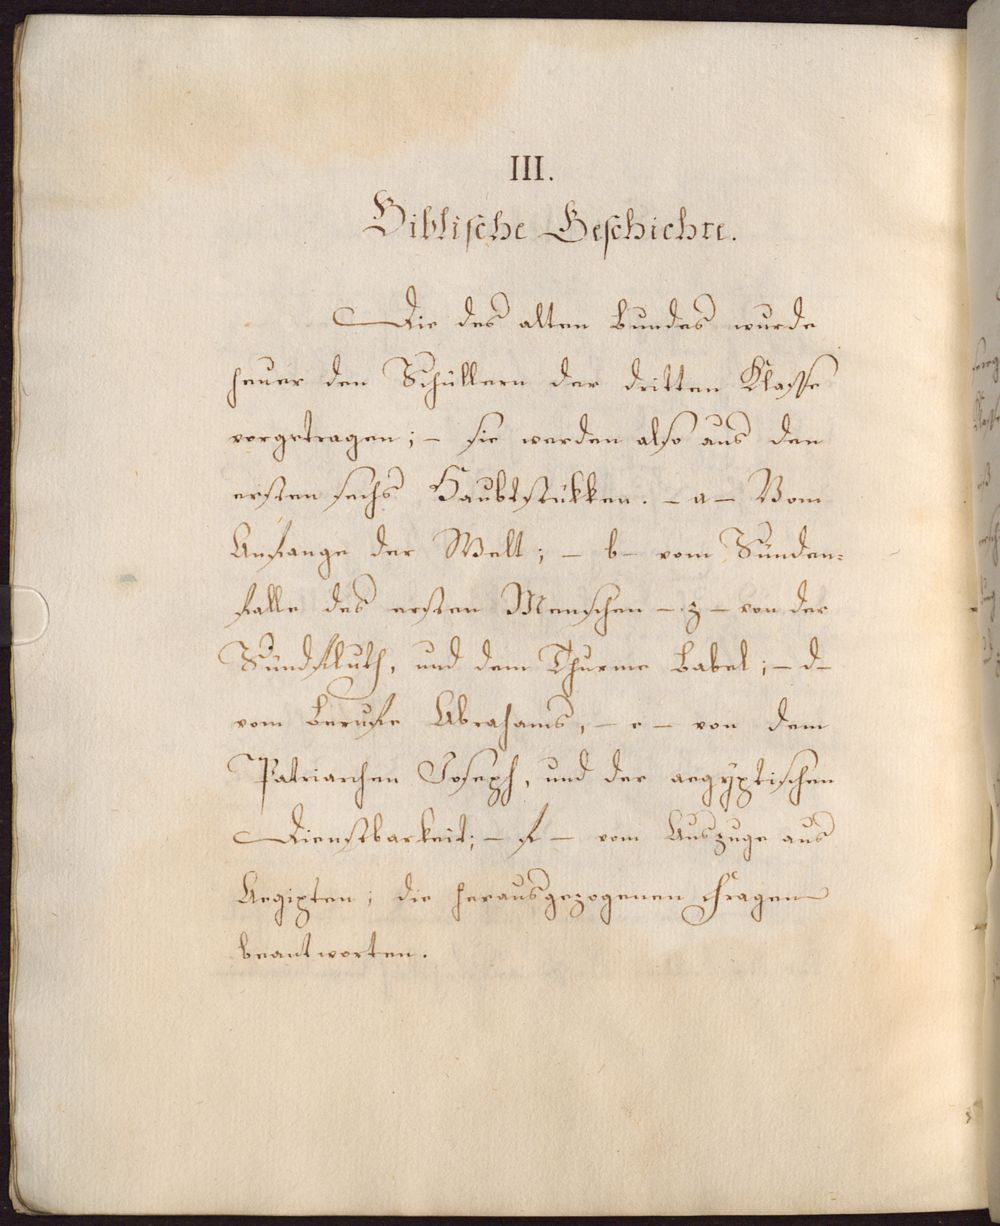 III.
Biblische Geschichte.
Die des alten Bundes wurde
heuer den Schüllern der dritten Klasse
vorgetragen; – sie werden also aus den
ersten sechs Haubtstükken. – a – Vom
Anfange der Welt; – b – vom Sünden=
falle des ersten Menschen – z – von der
Sündfluth, und dem Thurme Babel; – d –
vom Berufe Abrahams, – e – von dem
Patriarchen Joseph, und der aegyptischen
Dienstbarkeit; – f – vom Auszuge aus
Aegipten; die herausgezogenen Fragen
beantworten.